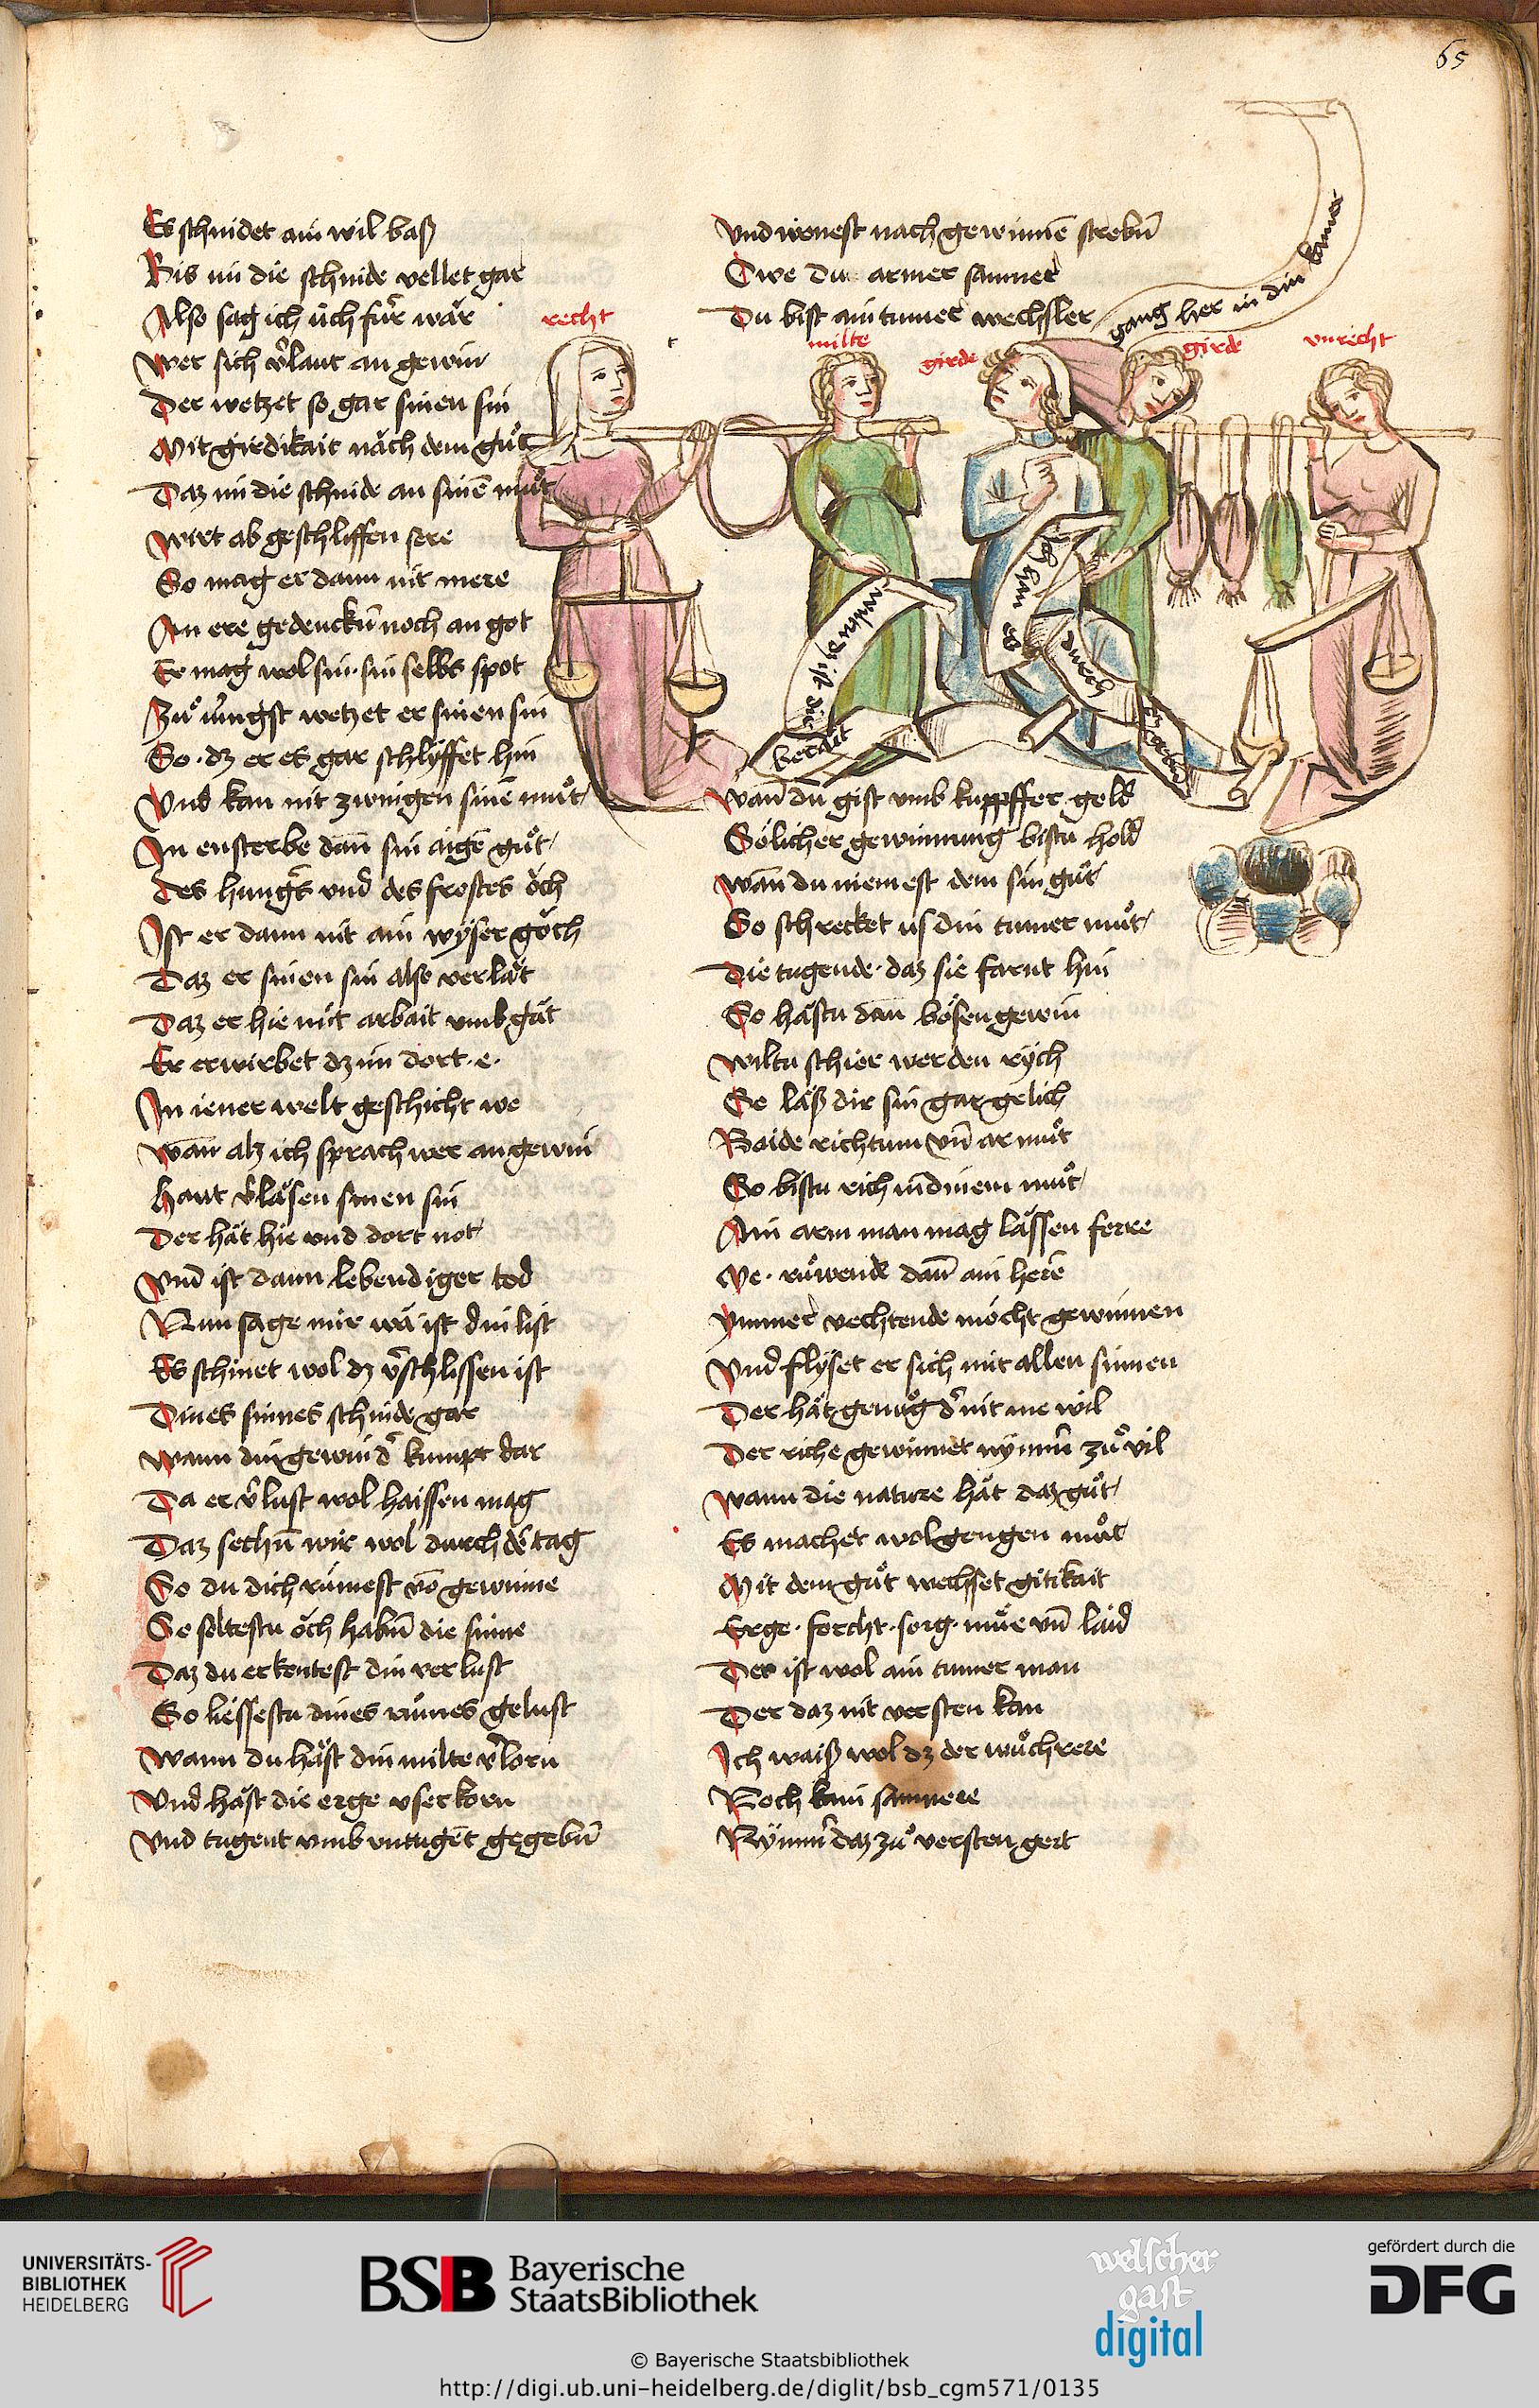 65
Es schnidet ain wil baß
Bis im die schnide vellet gar
Also sag ich üch für wär
Wer sich v̉laut an gewin
Der wetzet so gar sinen sin
Mit girdikait näch dem gůt
Daz im die schnide an sinē můt
Wirt ab geschliffen sere
So mag er dann nit mere
An ere gedenckn̄ noch an got
Er mag wol sin · sin selbs spot
Zů
wetzet er sinen sin
So · dz er es gar schlyffet hin
Und kan nit zwingen sinē můt
In ensterbe dañ sin aigē gůt
Des hungers und des frostes öch
Ist er dann nit ain wyser göch
Daz er sinen sin also verlät
Daz er hie mit arbait umb gät
Er erwirbet dz im dort · e ·
In iener welt geschicht we
Wān alz ich sprach wer an gewin
Haut v̉läsen sinen sin
Der hät hie und dort not
Vnd ist dann lebendiger tod
Nun sage mir wä ist din list
Es schinet wol dz v̉schlissen ist
Dines sinnes schnide gar
Wann din gewin d̉ kumpt dar
Da er v̉lust wol haissen mag
Daz sechn̄ wir wol durch dē tag
So du dich rümest vō gewinne
So soltestu öch habn̄ die sinne
Daz du erkentest din verlust
So liessestu dines růmes gelust
Wann du häst din milte v̉lorn
Und häst die erge userkorn
Und tugent umb untugēt gegebn̄
Und wenest nach gewinnē strebn̄
Owe du armer samner
Du bist ain tumer wechsler
gang her in din kamer
recht
milte
girde
girde
unrecht
ist die
berait
ich han
es
durch
Wān du gist umb kuppffer gold
Sölicher gewinnung bistu hold
Wān du niemest dem sin gůt
So schrecket us din tumer můt
Die tugende · daz sie farnt hin
So hästu dān bösen gewin
Wiltu schier werden rych
So läß dir sin gar gelich
Baide richtum vn̄ armůt
So bistu rich in dinem můt
Ain arm man mag lässen ferre
Me · růwende dañ ain herē
Ymmer vechtende möcht gewinnen
Und flyset er sich mit allen sinnen
Der hät genůg d̉ nit me wil
Der riche gewinnet nÿmm̉ zů vil
Wann die nature hät daz gůt
Es machet wol gengen můt
Mit dem gůt wechset gitikait
Erge · forcht · sorg · müe vn̄ laid
Der ist wol ain tumer man
Der daz nit versten kan
Ich waiß wol dz der wůchrere
Noch kain samnere
Nÿmm̉ daz zů versten gert
UNIVERSITÄTS-
BIBLIOTHEK
HEIDELBERG
BSB Bayerische
StaatsBibliothek
welscher
gast
digital
gefördert durch die
DFG
© Bayerische Staatsbibliothek
http://digi.ub.uni-heidelberg.de/diglit/bsb_cgm571/0135